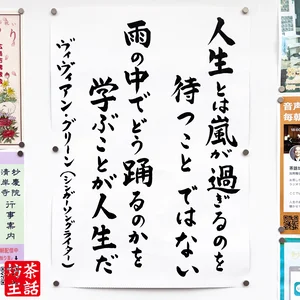 人生とは嵐が過ぎるのを
待つことではない
雨の中でどう踊るのかを
学ぶことが人生だ
ヴィヴィアン・グリーン（シンガーソングライター）
妙慶院
清岸寺
行事案内
坊主
茶話
音声
毎朝